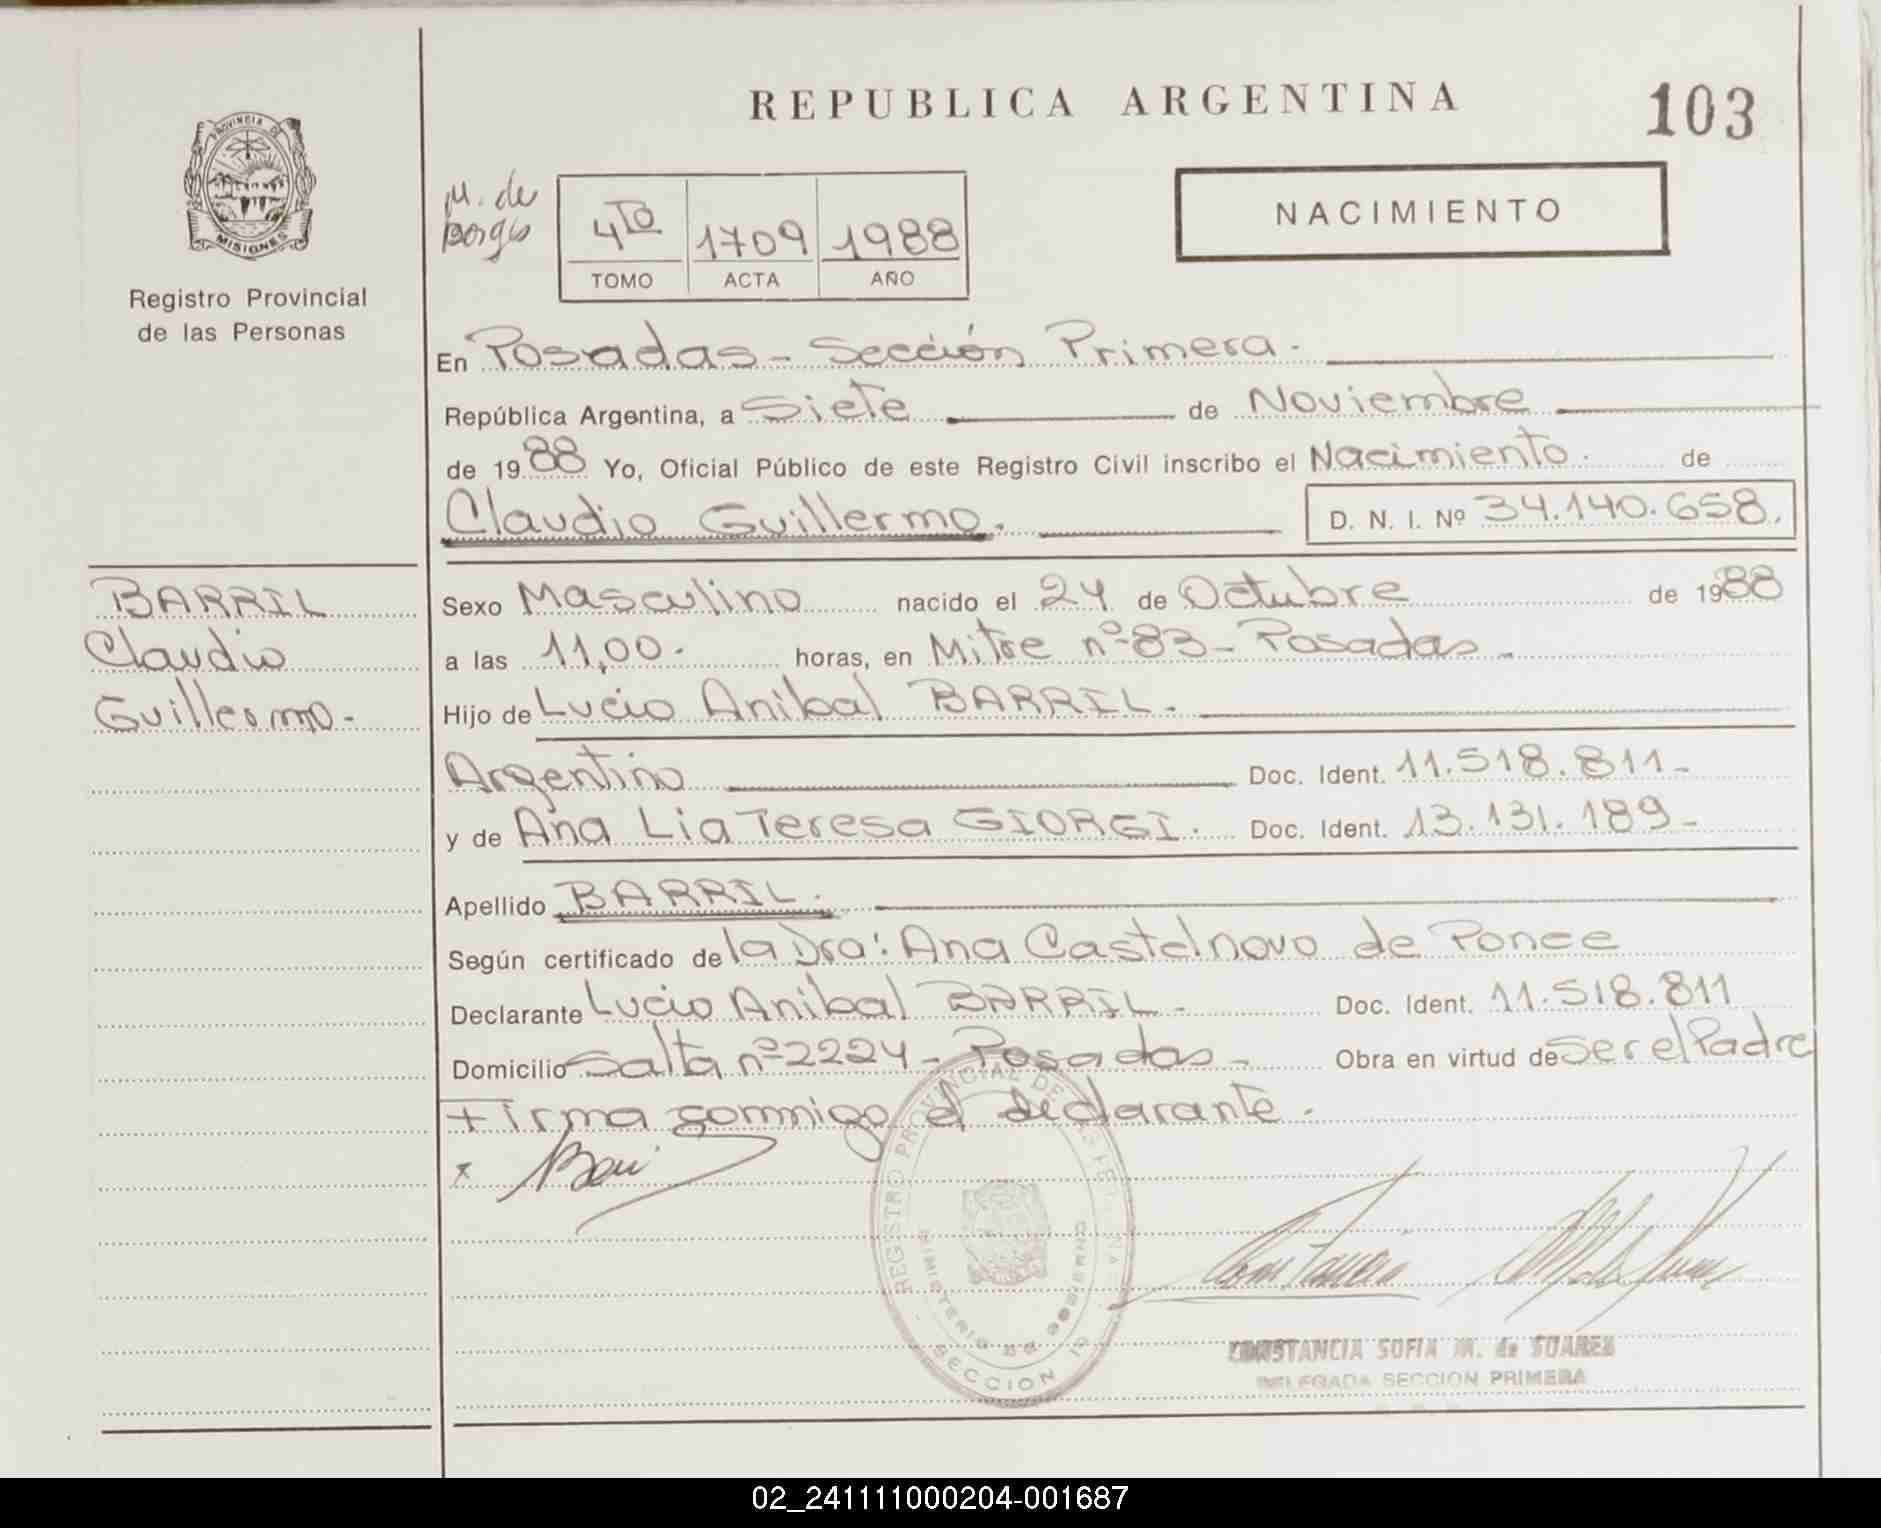 REPUBLICA ARGENTINA
103
PROVINCIA DE
MISIONES
Registro Provincial
de las Personas
M. de
4TO 1709 1988
TOMO ACTA AÑO
NACIMIENTO
En Posadas - Sección Primera.
República Argentina, a Siete de Noviembre
de 1988 Yo, Oficial Público de este Registro Civil inscribo el Nacimiento. de
Claudio Guillermo. D. N. I. Nº 34.140.658.
BARRIL
Claudio
Guillermo.-
Sexo Masculino nacido el 24 de Octubre de 1988
a las 11,00. horas, en Mitre nº 83 - Posadas -
Hijo de Lucio Anibal BARRIL.
Argentino Doc. Ident. 11.518.811-
y de Ana Lia Teresa GIORGI. Doc. Ident. 13.131.189-
Apellido BARRIL.
Según certificado de la Dra: Ana Castelnovo de Ponce
Declarante Lucio Anibal BARRIL - Doc. Ident. 11.518.811
Domicilio Salta nº 2224 - Posadas - Obra en virtud de Ser el Padre
Firma conmigo el declarante.
x
REGISTRO PROVINCIAL DE LAS PERSONAS
MINISTERIO DE GOBIERNO
SECCION 1a
CONSTANCIA SOFIA M. de SUAREZ
DELEGADA SECCION PRIMERA
02_241111000204-001687